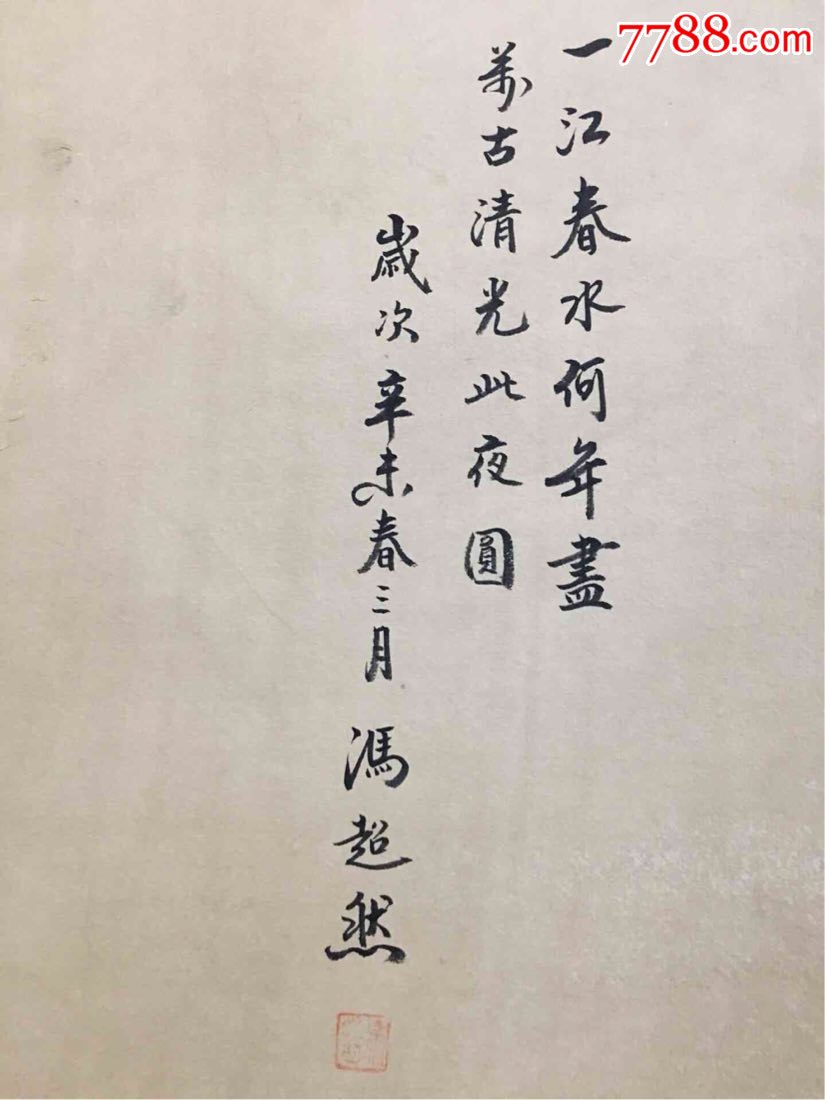 7788.com
一江春水何年盡
萬古清光此夜圓
歲次辛未春三月馮超然